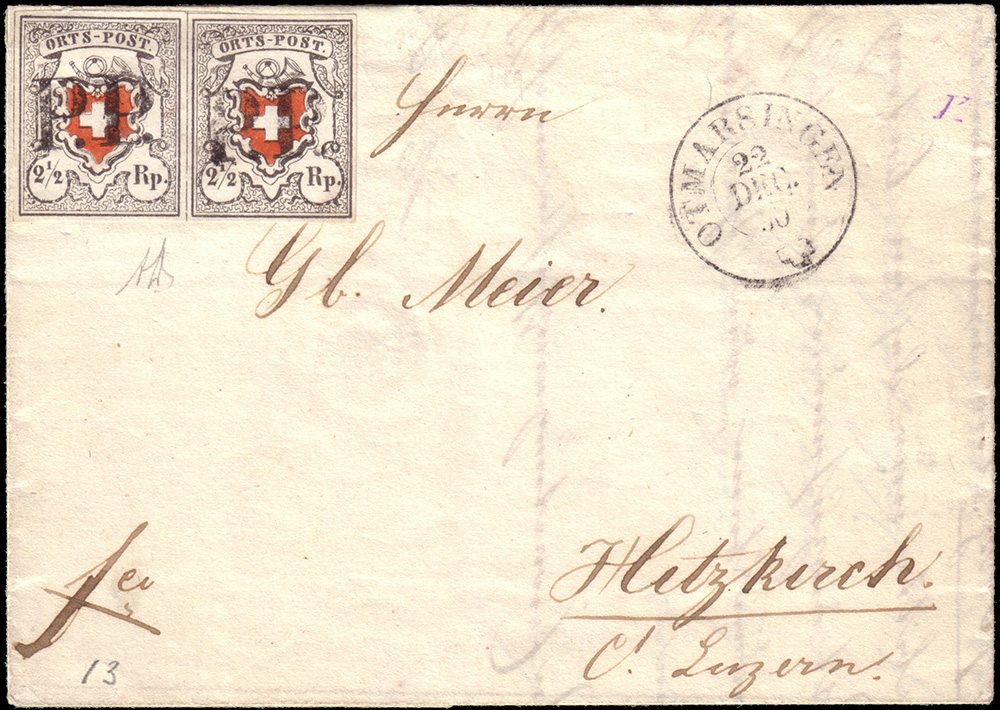 ORTS-POST.
P.P.
2½ Rp.
ORTS-POST.
2½ Rp.
Herrn
OTMARSINGEN
22
DEC.
50
Gb. Meier.
Hitzkirch.
Ct. Luzern.
13